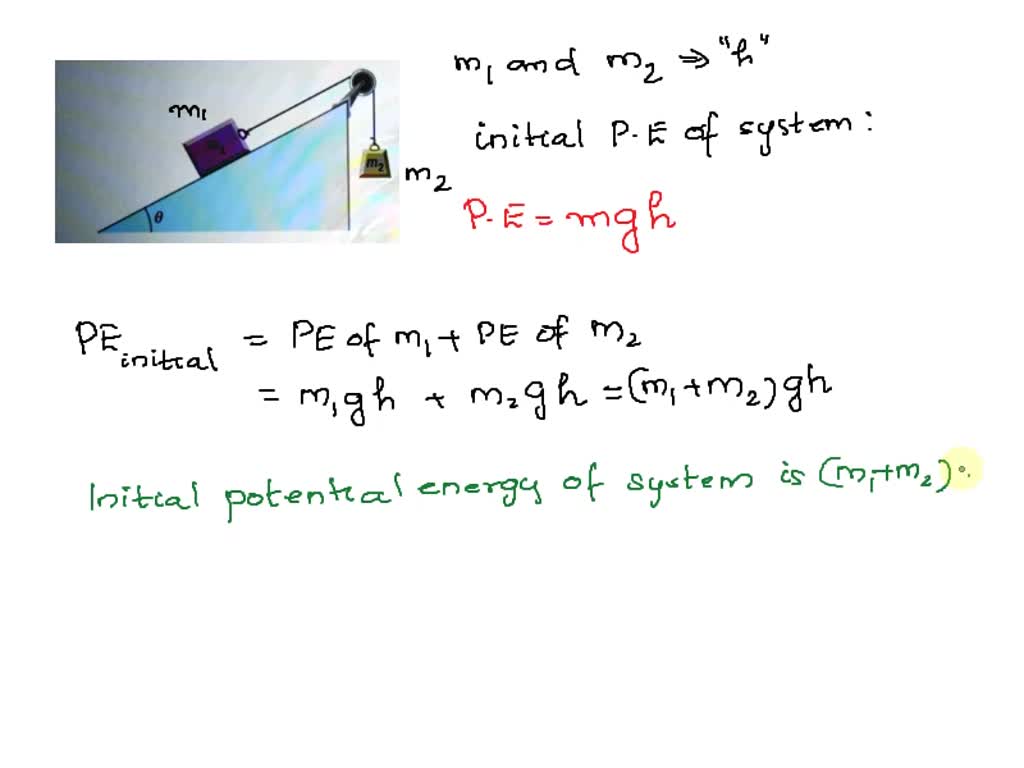 m₁ and m₂ ⇒ "h"
initial P.E of system:
P.E = mgh
m₁
m₂
m₂
θ
PE initial = PE of m₁ + PE of m₂
= m₁gh + m₂gh = (m₁+m₂)gh
Initial potential energy of system is (m₁+m₂)